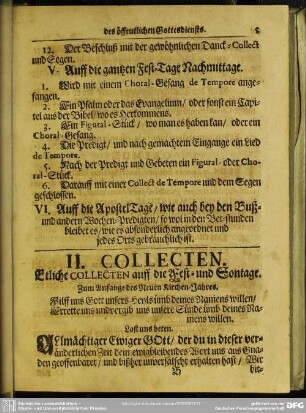 des öffentlichen Gottesdiensts. 5
12. Der Beschluß mit der gewöhnlichen Danck-Collect
und Segen.
V. Auff die gantzen Fest-Tage Nachmittage.
1. Wird mit einem Choral-Gesang de Tempore ange-
fangen.
2. Ein Psalm oder das Evangelium/ oder sonst ein Capi-
tel aus der Bibel/ wo es Herkommens.
3. Ein Figural-Stück/ wo man es haben kan/ oder ein
Choral-Gesang.
4. Die Predigt/ und nach gemachtem Eingange ein Lied
de Tempore.
5. Nach der Predigt und Gebeten ein Figural- oder Cho-
ral-Stück.
6. Darauff mit einer Collect de Tempore und dem Segen
geschlossen.
VI. Auff die Apostel Tage/ wie auch bey den Buß-
und andern Wochen-Predigten/ so wol in den Bet-stunden
bleibet es/ wie es absonderlich angeordnet und
jedes Orts gebräuchlich ist.
II. COLLECTEN.
Etliche COLLECTEN auff die Fest- und Sontage.
Zum Anfange des Neuen Kirchen-Jahres.
Hilff uns Gott unsers Heyls umb deines Namens willen/
Errette uns und vergib uns unsere Sünde umb deines Na-
mens willen.
Last uns beten.
Allmächtiger Ewiger GOtt/ der du in dieser ver-
änderlichen Zeit dein ewigbleibendes Wort uns aus Gna-
den geoffenbaret/ und bißher unverfälscht erhalten hast/ Wir
bit-